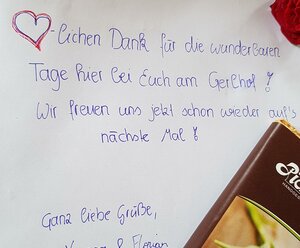 -lichen Dank für die wunderbaren
Tage hier bei Euch am Gerlhof !
Wir freuen uns jetzt schon wieder auf's
nächste Mal !
Ganz liebe Grüße,
& Florian